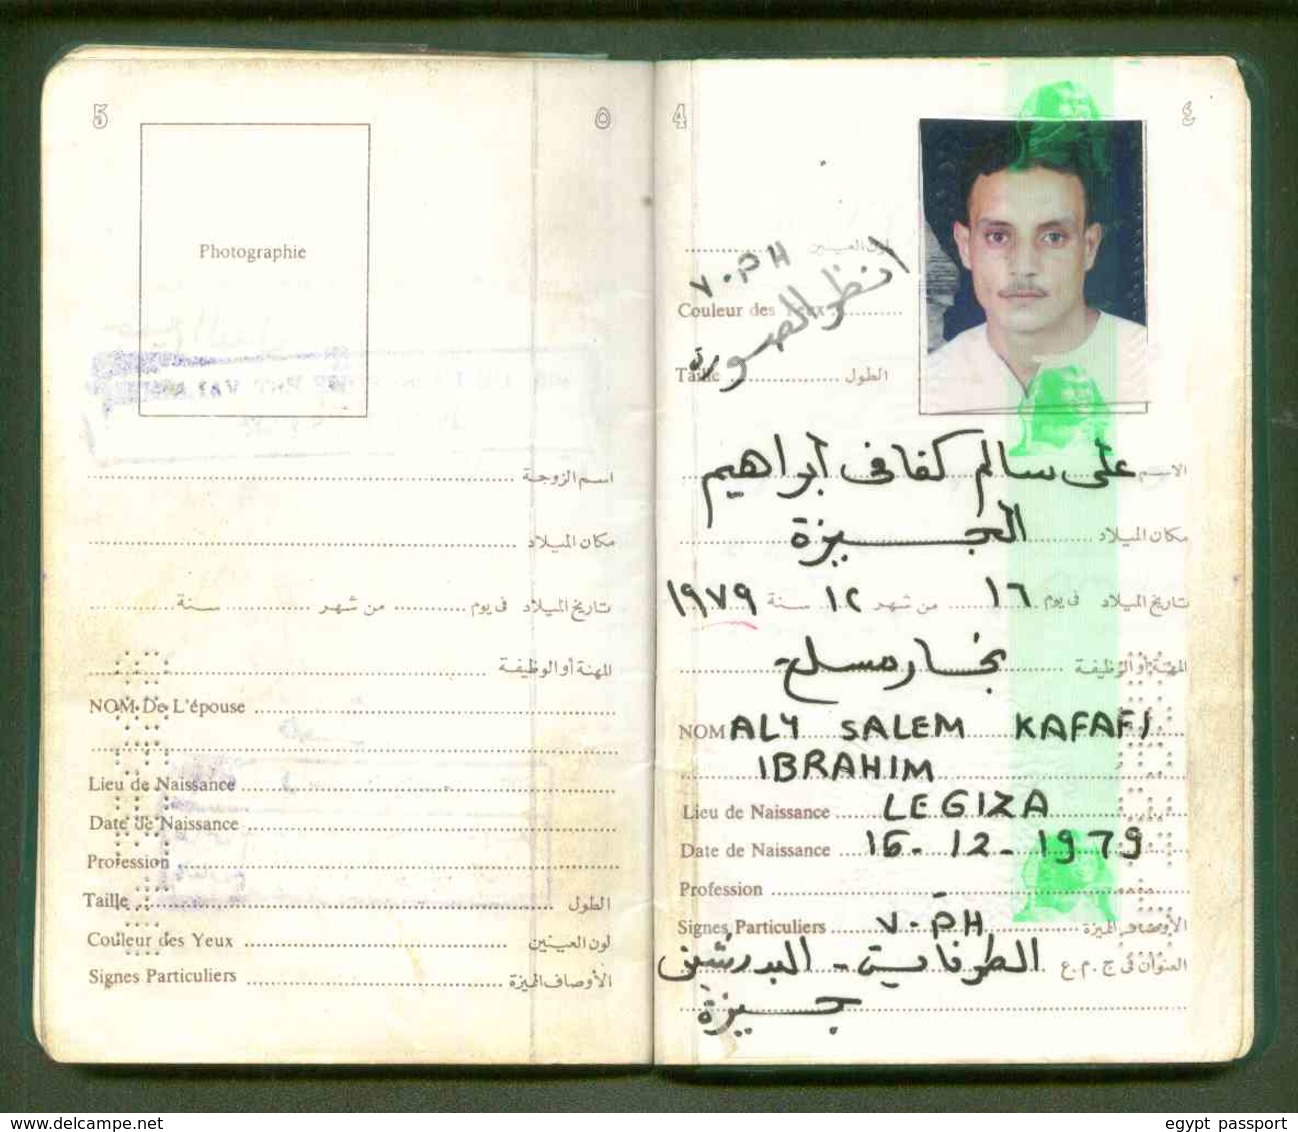 5
٥
Photographie
اسم الزوجة
مكان الميلاد
تاريخ الميلاد في يوم من شهر سنة
المهنة أو الوظيفة
NOM De L'épouse
Lieu de Naissance
Date de Naissance
Profession
Taille الطول
Couleur des Yeux لون العينين
Signes Particuliers الأوصاف المميزة
4
٤
لون العينين
V.PH
انظر الصورة
Couleur des Yeux
Taille الطول
الاسم على سالم كفافى ابراهيم
مكان الميلاد الجيزة
تاريخ الميلاد فى يوم ١٦ من شهر ١٢ سنة ١٩٧٩
المهنة أو الوظيفة نجار مسلح
NOM ALY SALEM KAFAFI
IBRAHIM
Lieu de Naissance LEGIZA
Date de Naissance 16-12-1979
Profession
Signes Particuliers V.PH الأوصاف المميزة
العنوان فى ج.م.ع الطرفاية - البدرشين
جيزة
delcampe.net
egypt passport